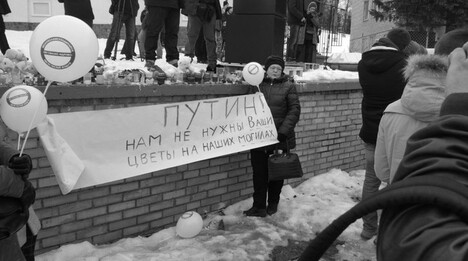 ПУТИН!
НАМ НЕ НУЖНЫ ВАШИ
ЦВЕТЫ НА НАШИХ МОГИЛАХ